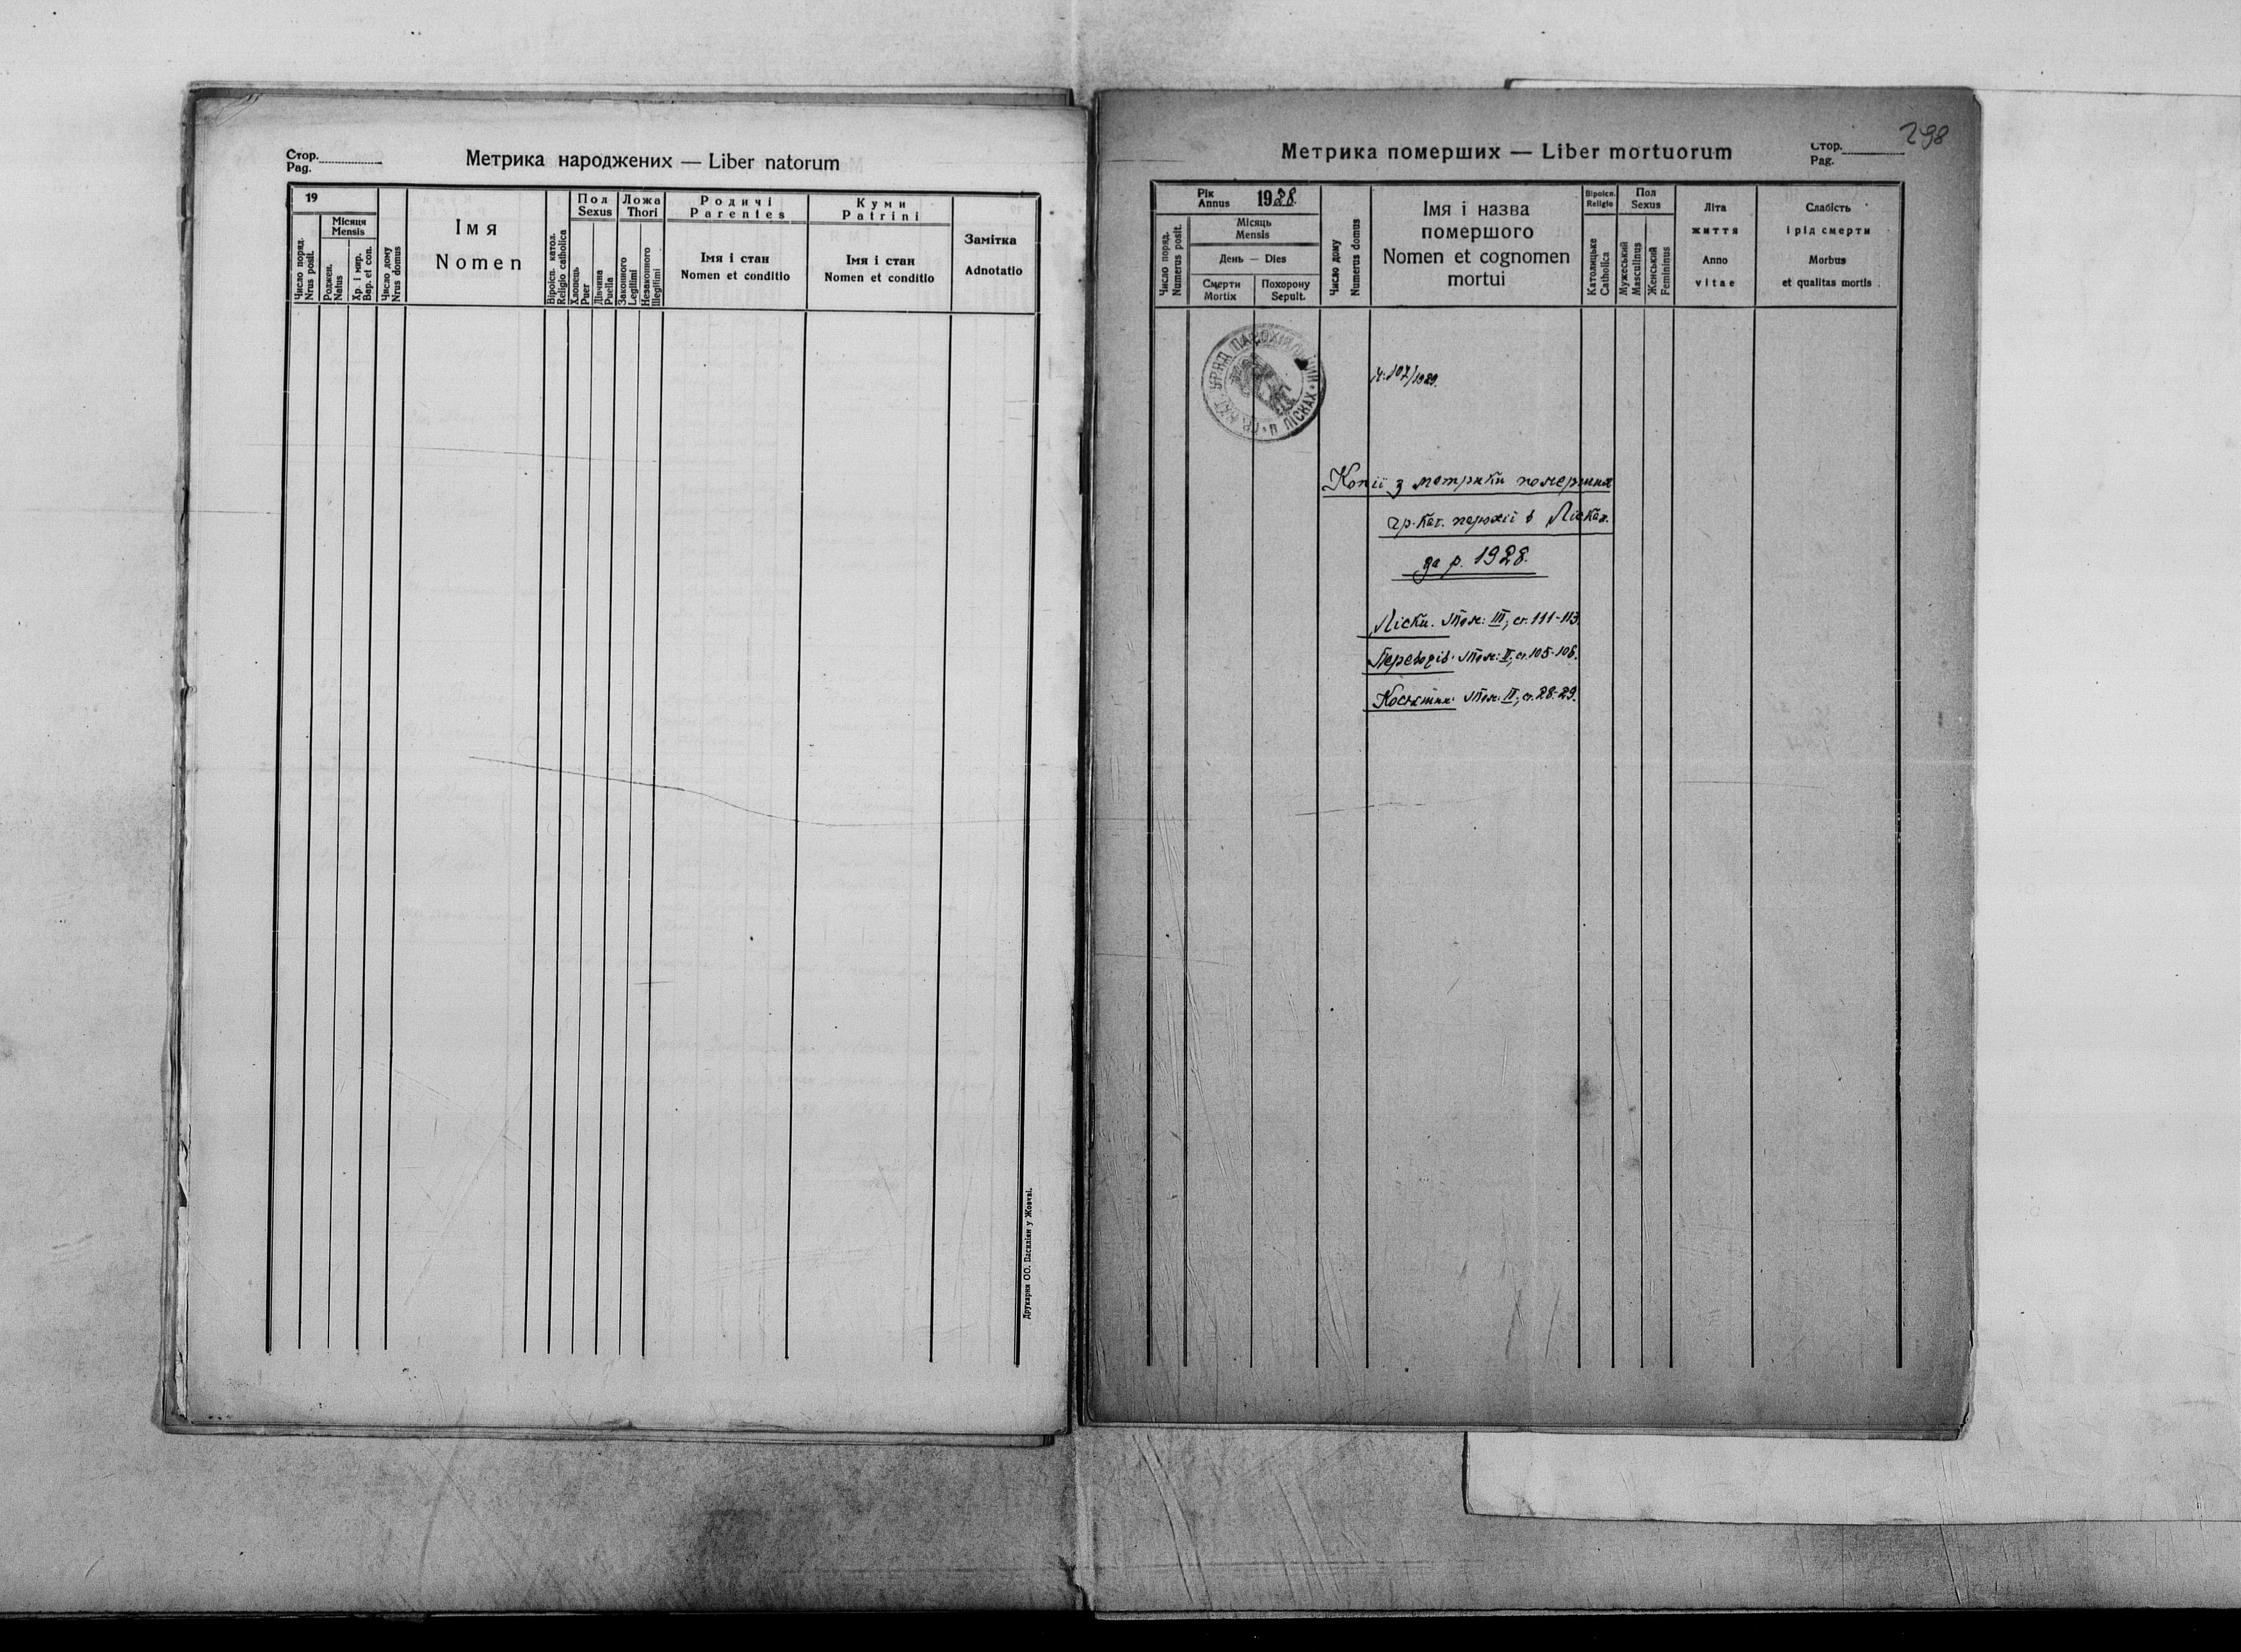 Стор.
Pag.
Метрика народжених — Liber natorum
19
Число поряд.
Nrus posit.
Місяця
Mensis
Роджен.
Natus
Хр. і мир.
Bap. et con.
Число дому
Nrus domus
Імя
Nomen
Віроісп. катол.
Religio catholica
Пол
Sexus
Хлопець
Puer
Дівчина
Puella
Ложа
Thori
Законного
Legitimi
Незаконного
Illegitimi
Родичі
Parentes
Імя і стан
Nomen et conditio
Куми
Patrini
Імя і стан
Nomen et conditio
Замітка
Adnotatio
Друкарня ОО. Василіян у Жовкві.
298
Метрика померших — Liber mortuorum
Стор.
Pag.
Рік
Annus
1928.
Число поряд.
Numerus posit.
Місяць
Mensis
День — Dies
Смерти
Mortix
Похорону
Sepult.
Число дому
Numerus domus
Імя і назва
помершого
Nomen et cognomen
mortui
Віроісп.
Religio
Католицьке
Catholica
Пол
Sexus
Мужеський
Masculinus
Женський
Femininus
Літа
життя
Anno
vitae
Слабість
і рід смерти
Morbus
et qualitas mortis
ГР. КАТ. УРЯД ПАРОХІЯЛЬНИЙ В ЛІСКАХ
Ч: 107/1929.
Копії з метрики померших
гр. кат. парохії в Лісках.
за р. 1928.
Ліски. Том: III, ст. 111-113
Переводів: Том: II, ст. 105-106.
Том: II, ст. 28-29.